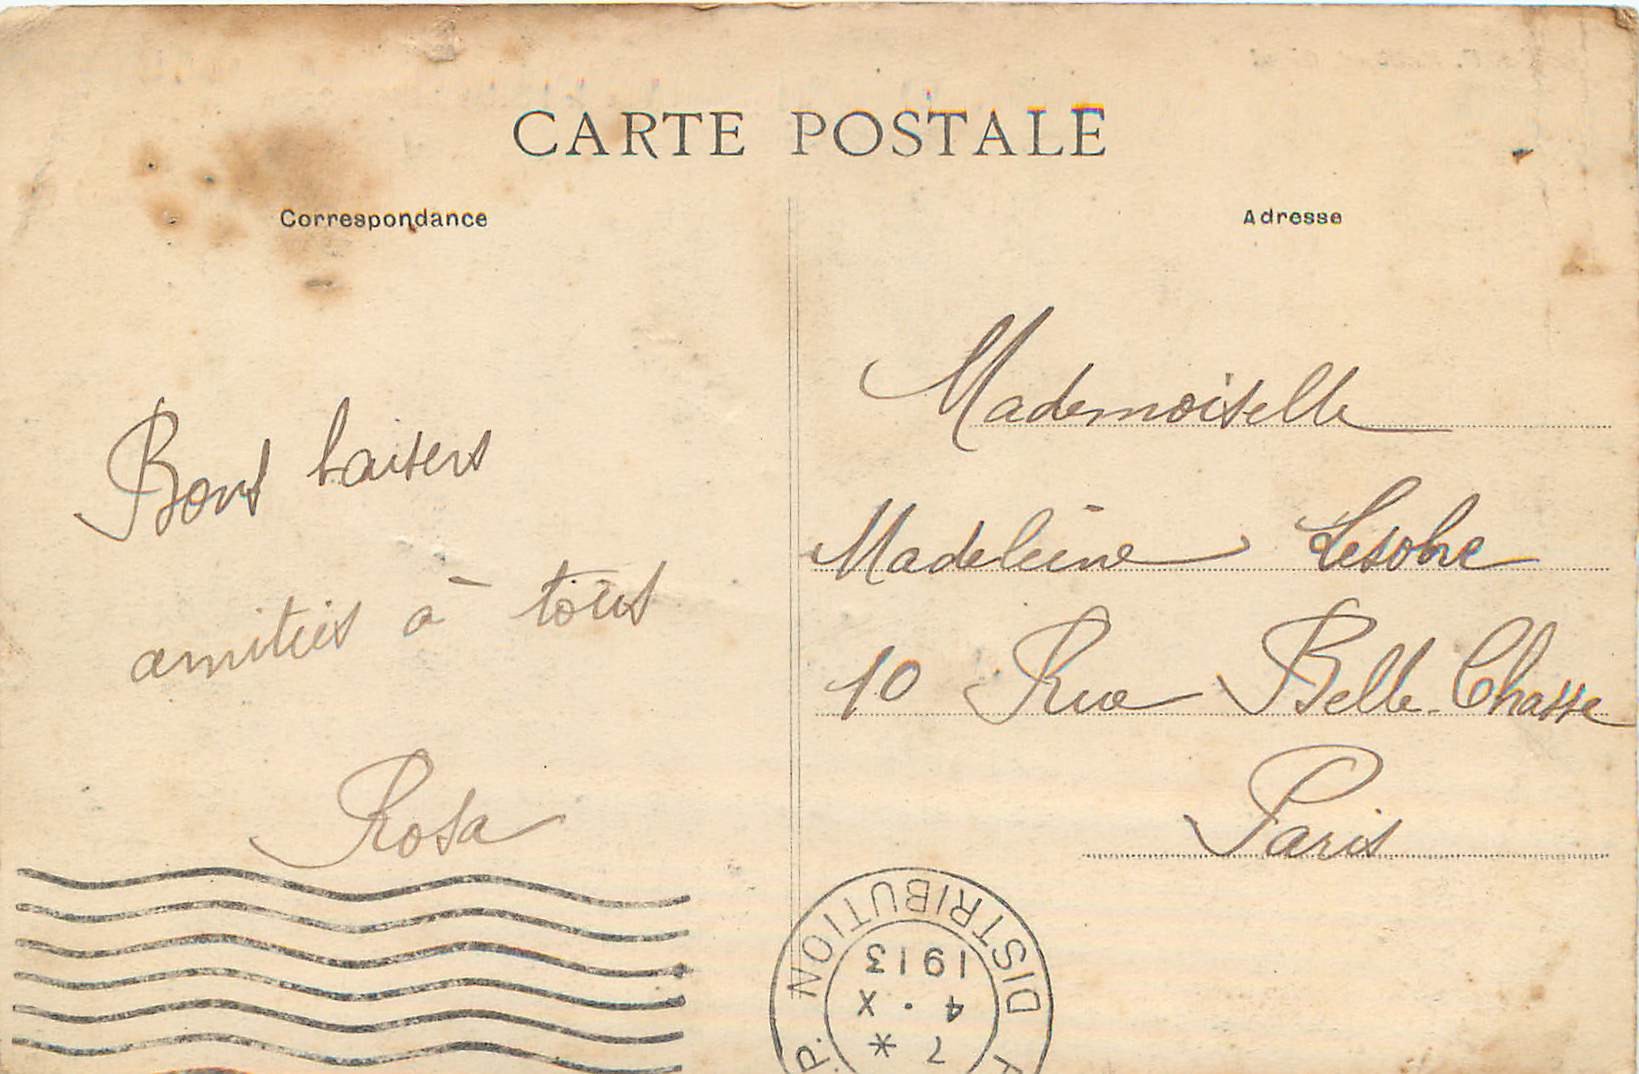 CARTE POSTALE
Correspondance
Bons baisers
amitiés à tous
Rosa
Adresse
Mademoiselle
Madeleine Lesobre
10 Rue Belle-Chasse
Paris
DISTRIBUTION
7 *
4 . X
1913
P.